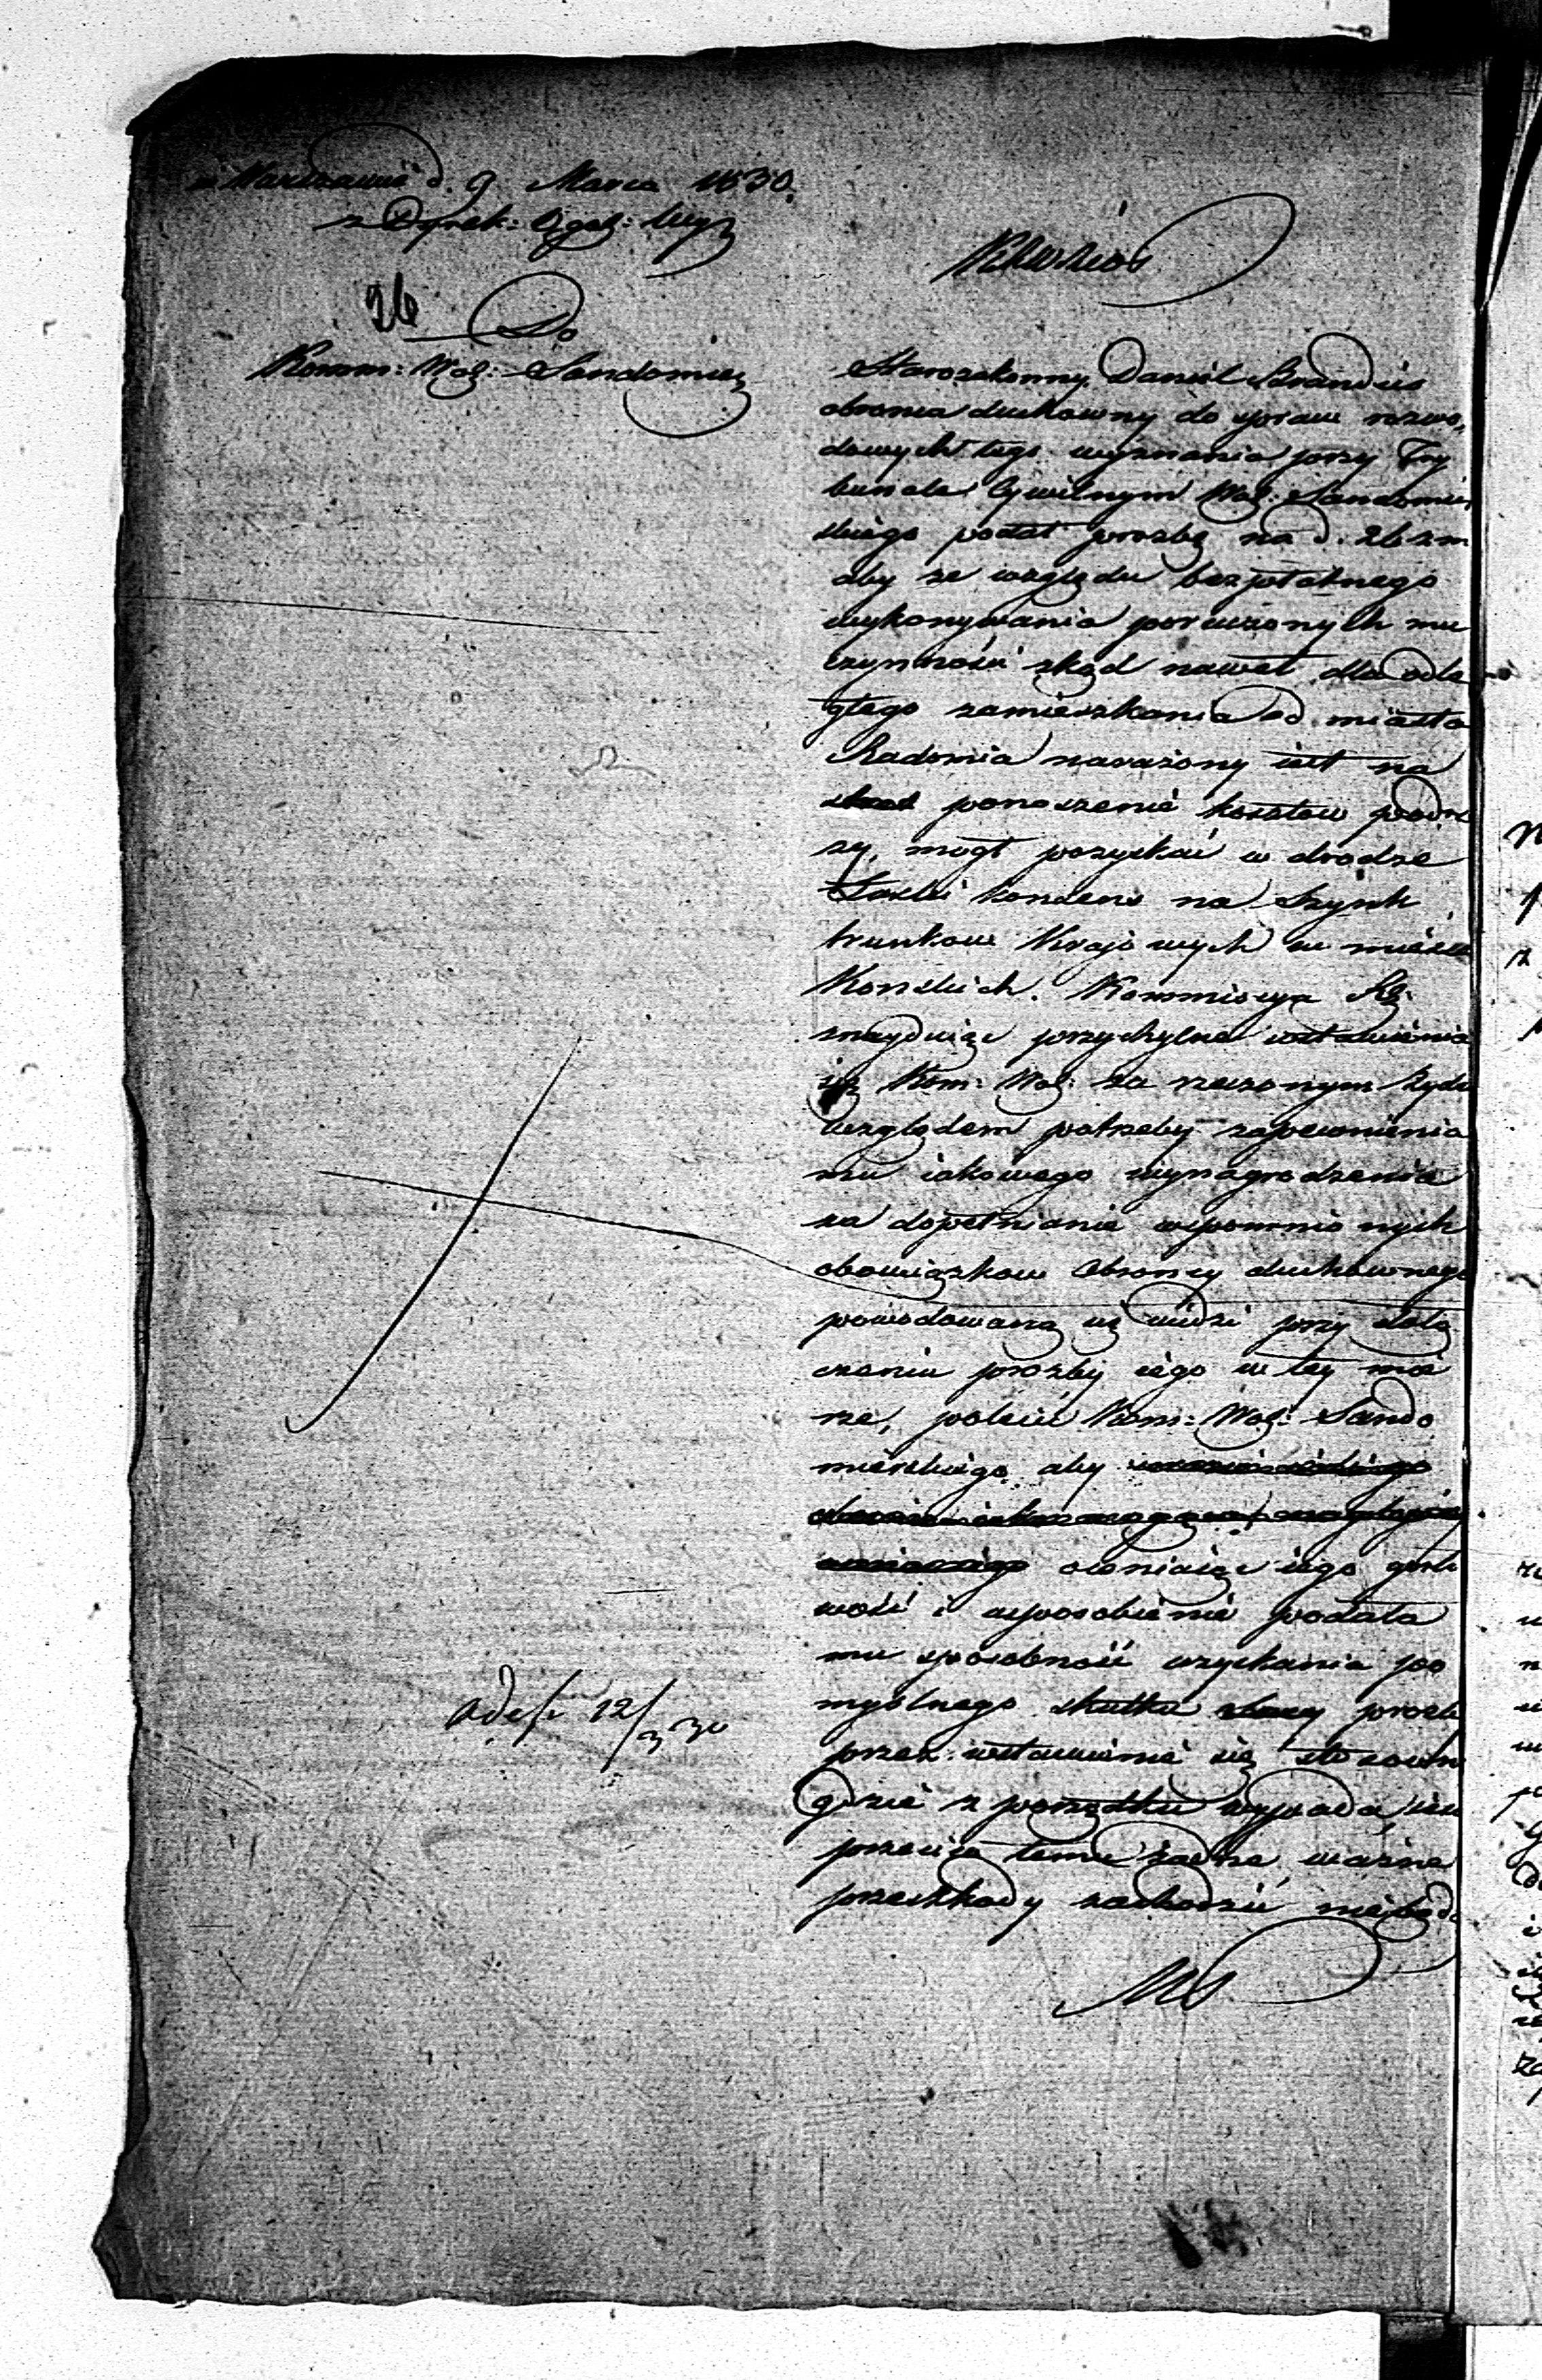 w Warszawie d. 9 Marca 1830.
26
Do
Komm: Woj: Sandomier
Starozakonny Daniel Brandeis
obronca duchowny do spraw rozwo,
dowych tego wyznania przy Try
bunale Cywilnym Woj: Sandomir,
skiego podał prozbę na d. 26 zm
aby ze względu bezpłatnego
wykonywania poruczonych mu
czynności zkąd nawet dla odle
głego zamieszkania od miasta
Radomia narażony iest na
ponoszenie kosztow podró
ży, mógł pozyskać w drodze
Łaski konsens na Szynk
trunkow Krajowych w mieście
Konskich. Kommissya Rz:
znayduiąc przychylne wstawienie
się Kom: Woj: za rzeczonym Żyde
względem potrzeby zapewnienia
mu iakowego wynagrodzenia
za dopełnianie wspomnionych
obowiązkow Obroncy duchownego
powodowaną się widzi przy dołą
czeniu prozby iego w tey mie
rze, polecić Kom: Woj: Sando
mierskiego aby
oceniaiąc iego gorli
wość i usposobienie podała
mu sposobność uzyskania po
myślnego skutku prozb
przez wstawienie się stosown
gdzie z porządku wypada, ieżeli
przeciw temu żadne ważne
przeszkody zachodzić nie będą
12/3 30